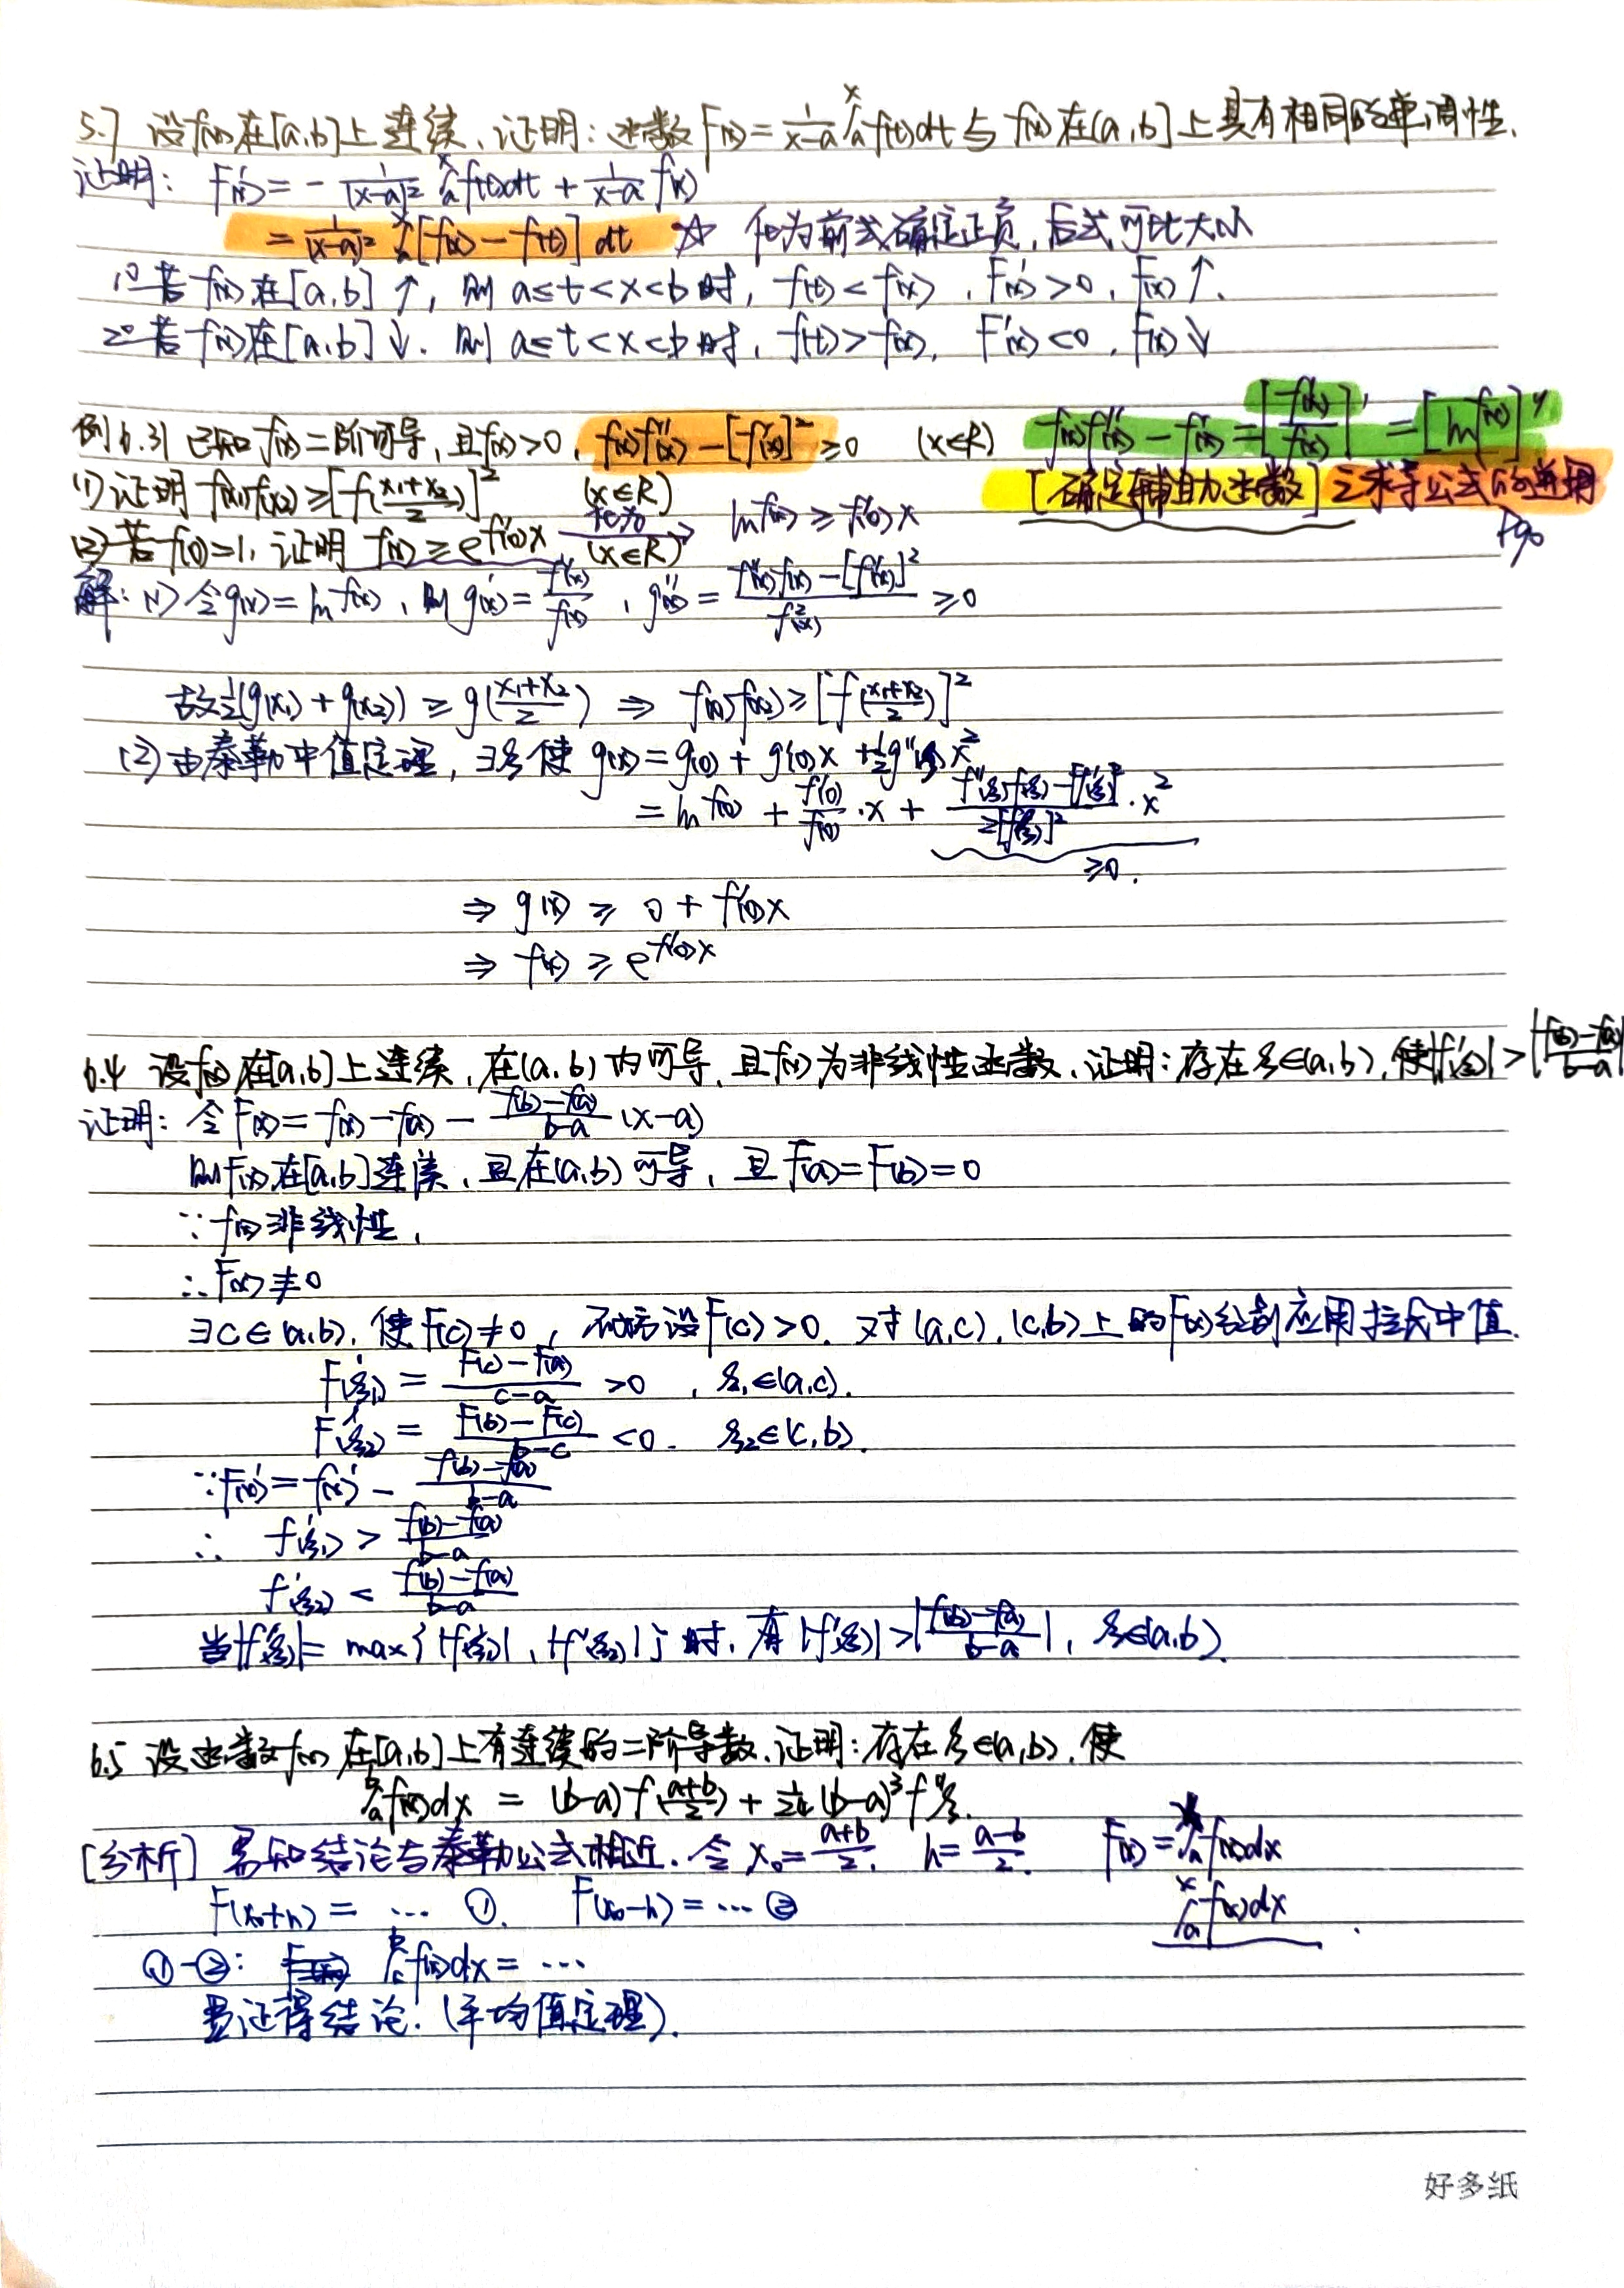 5.7 设f(x)在[a,b]上连续、证明：函数F(x)=1/(x-a)∫ₐˣf(t)dt与f(x)在(a,b]上具有相同的单调性.
证明：F'(x)=-1/(x-a)²∫ₐˣf(t)dt+1/(x-a)f(x)
=1/(x-a)²∫ₐˣ[f(x)-f(t)]dt ☆ 化为前式确定正负,后式可比大小
1°若f(x)在[a,b]↑,则a≤t<x<b时,f(t)<f(x),F'(x)>0,F(x)↑.
2°若f(x)在[a,b]↓.则a≤t<x<b时,f(t)>f(x),F'(x)<0,F(x)↓
例6.3 已知f(x)二阶可导,且f(x)>0,f(x)f''(x)-[f'(x)]²≥0 (x∈R) f(x)f''(x)-f'(x)=[f'(x)/f(x)]'=[ln f(x)]''
(1)证明f(x₁)f(x₂)≥[f((x₁+x₂)/2)]² (x∈R) [确定辅助函数]之求导公式的逆用
P90
(2)若f(0)=1,证明f(x)≥e^{f'(0)x} (x∈R) 化为→ ln f(x)≥f'(0)x
解：(1)令g(x)=ln f(x),则g'(x)=f'(x)/f(x),g''(x)=(f''(x)f(x)-[f'(x)]²)/f²(x)≥0
故½(g(x₁)+g(x₂))≥g((x₁+x₂)/2)⇒f(x₁)f(x₂)≥[f((x₁+x₂)/2)]²
(2)由泰勒中值定理,∃ξ使g(x)=g(0)+g'(0)x+½g''(ξ)x²
=ln f(0)+f'(0)/f(0)·x+(f''(ξ)f(ξ)-[f'(ξ)]²)/(2[f(ξ)]²)·x²
≥0.
⇒g(x)≥0+f'(0)x
⇒f(x)≥e^{f'(0)x}
6.4 设f(x)在[a,b]上连续,在(a,b)内可导,且f(x)为非线性函数、证明：存在ξ∈(a,b),使|f'(ξ)|>|(f(b)-f(a))/(b-a)|
证明：令F(x)=f(x)-f(a)-(f(b)-f(a))/(b-a)(x-a)
则F(x)在[a,b]连续,且在(a,b)可导,且F(a)=F(b)=0
∵f(x)非线性,
∴F(x)≢0
∃c∈(a,b),使F(c)≠0,不妨设F(c)>0.对(a,c),(c,b)上的F(x)分别应用拉氏中值.
F'(ξ₁)=(F(c)-F(a))/(c-a)>0,ξ₁∈(a,c).
F'(ξ₂)=(F(b)-F(c))/(b-c)<0.ξ₂∈(c,b).
∵F'(x)=f'(x)-(f(b)-f(a))/(b-a)
∴f'(ξ₁)>(f(b)-f(a))/(b-a)
f'(ξ₂)<(f(b)-f(a))/(b-a)
当|f'(ξ)|=max{|f'(ξ₁)|,|f'(ξ₂)|}时,有|f'(ξ)|>|(f(b)-f(a))/(b-a)|,ξ∈(a,b).
6.5 设函数f(x)在[a,b]上有连续的二阶导数、证明：存在ξ∈(a,b),使
∫ₐᵇf(x)dx=(b-a)f((a+b)/2)+1/24(b-a)³f''(ξ).
[分析]易知结论与泰勒公式相近.令x₀=(a+b)/2, h=(a-b)/2. F(x)=∫ₐˣf(x)dx
F(x₀+h)=…①. F(x₀-h)=…② ∫ₐˣf(x)dx.
①-②：∫ₐᵇf(x)dx=…
易证得结论.(平均值定理).
好多纸